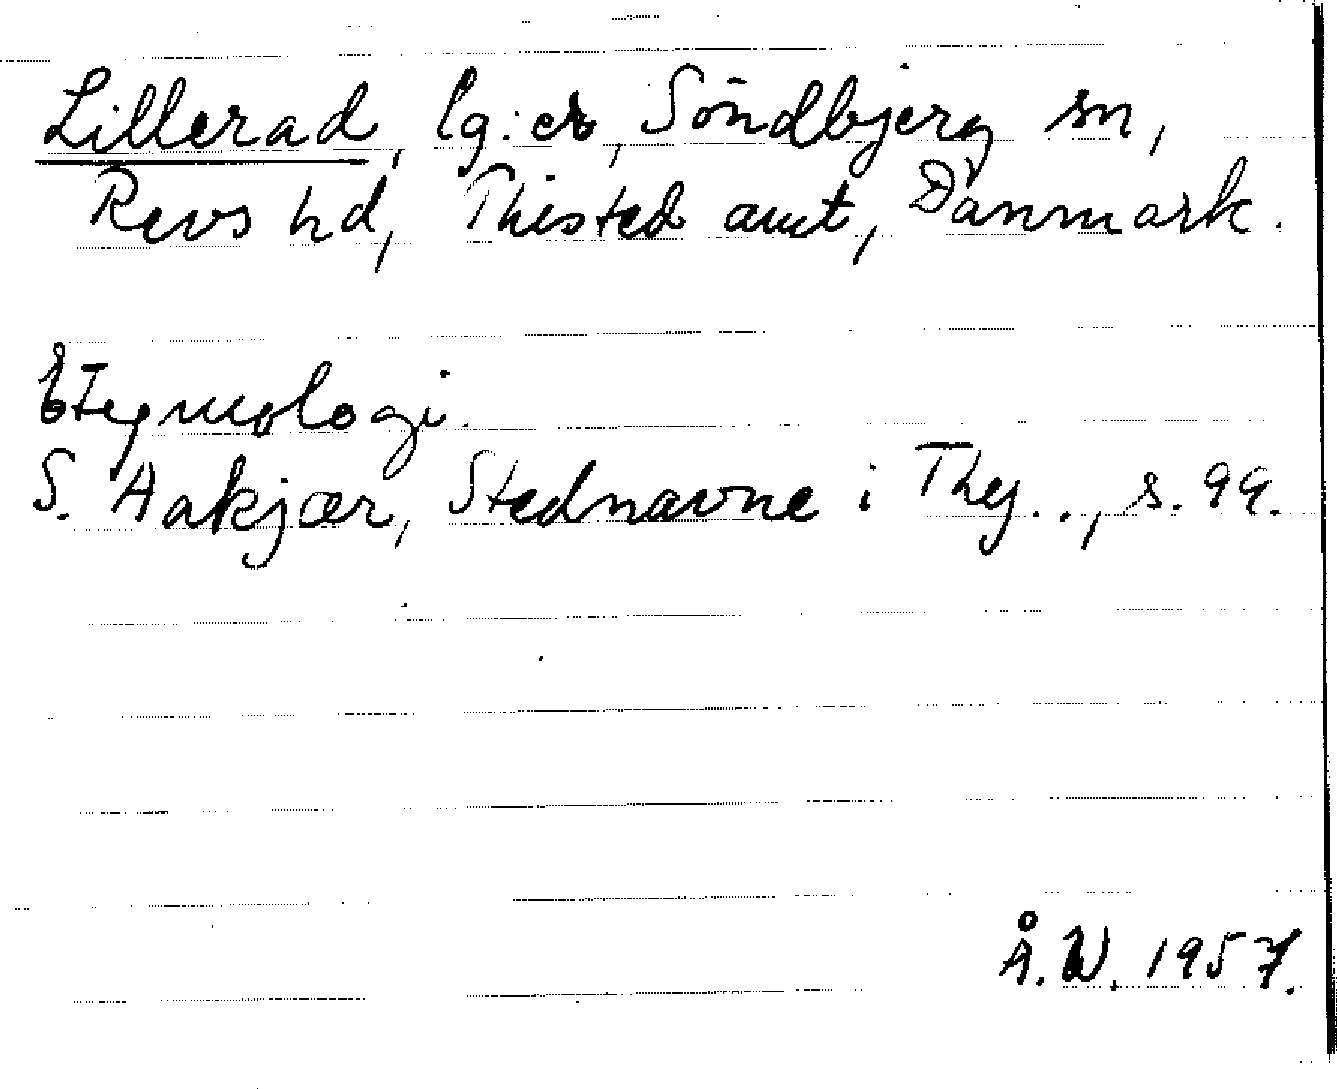 Lillerad, lg:er, Söndbjerg sn,
Revs hd, Thisted amt, Danmark.
Etymologi.
S. Aakjær, Stednavne i Thy.., s. 99.
Å.W. 1957.